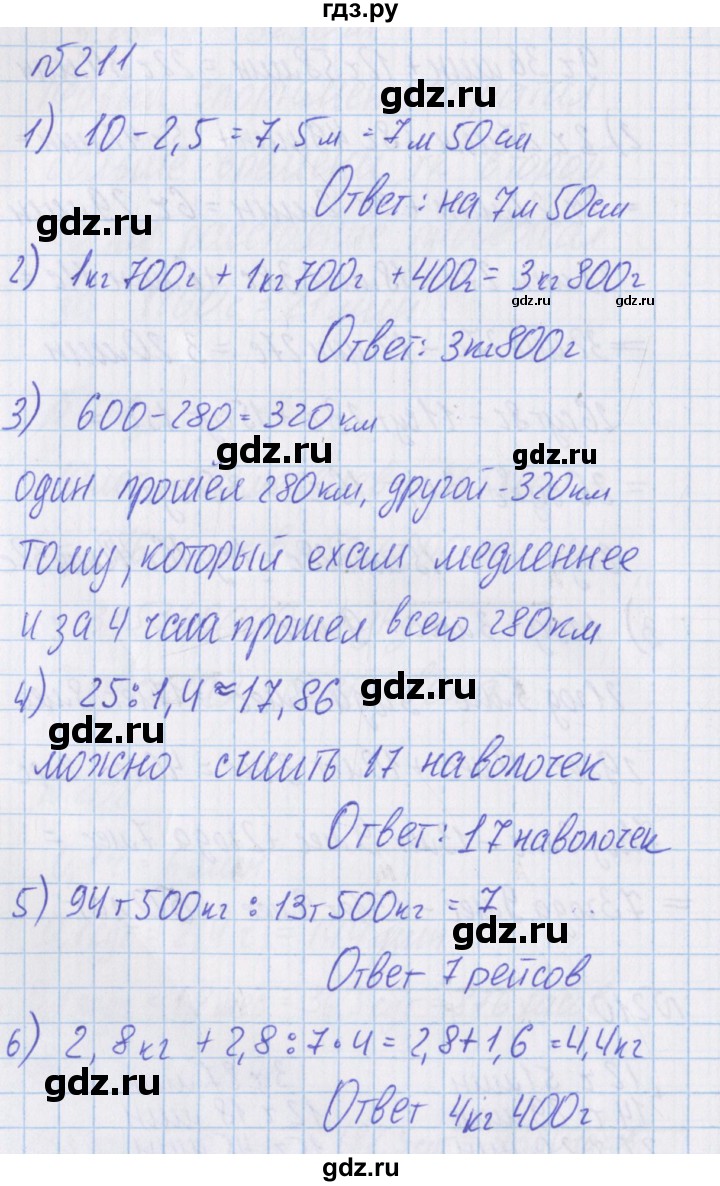 гдз.ру
№211
gdz.ru
1) 10 - 2,5 = 7,5 м = 7 м 50 см
Ответ: на 7 м 50 см
gdz.ru
2) 1 кг 700 г + 1 кг 700 г + 400 г = 3 кг 800 г
gdz.ru gdz.ru
Ответ: 3 кг 800 г
3) 600 - 280 = 320 км
gdz.ru gdz.ru
один прошёл 280 км, другой - 320 км
Тому, который ехам медленнее
и за 4 часа прошел всего 280 км
4) 25 : 1,4 ≈ 17,86
gdz.ru
gdz.ru
можно сшить 17 наволочек
Ответ: 17 наволочек
5) 94 т 500 кг : 13 т 500 кг = 7
gdz.ru
Ответ 7 рейсов
6) 2,8 кг + 2,8 : 7 • 4 = 2,8 + 1,6 = 4,4 кг
gdz.ru
Ответ 4 кг 400 г
gdz.ru